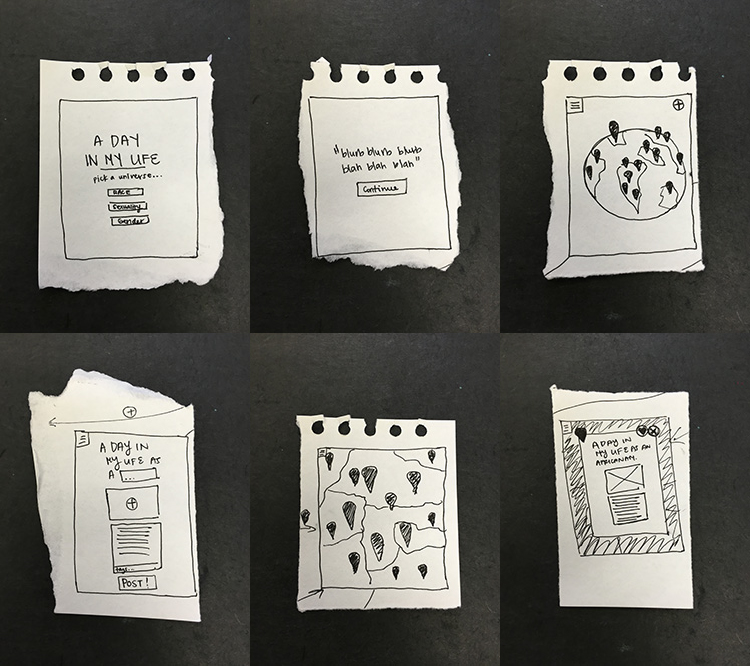 A DAY
IN MY LIFE
pick a universe...
RACE
Sexuality
Gender
"blurb blurb blurb
blah blah blah"
Continue
A DAY IN
MY LIFE AS
A ...
tags...
POST!
A DAY IN
MY LIFE AS AN